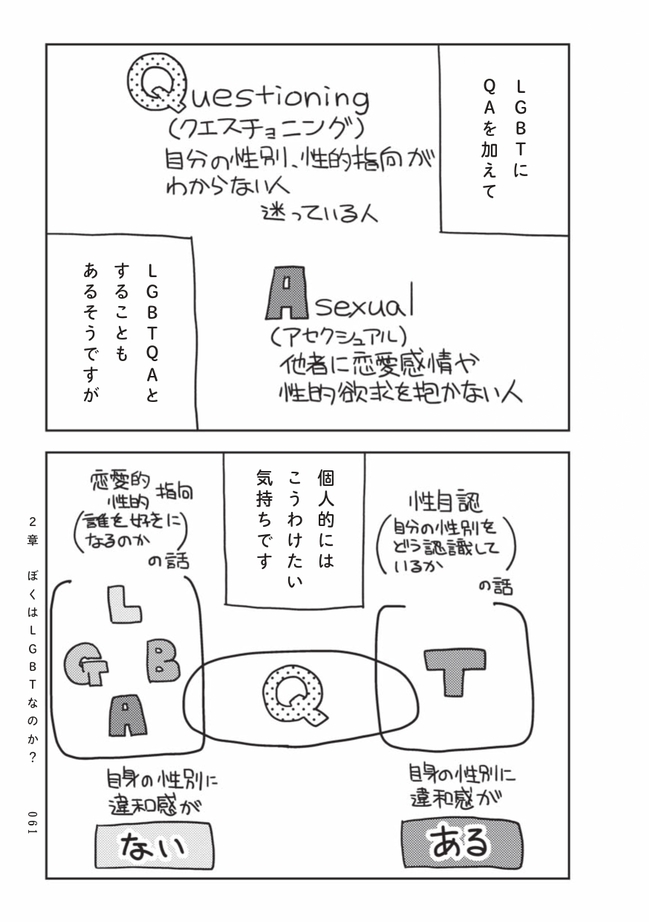 LGBTに
QAを加えて
Questioning
(クエスチョニング)
自分の性別、性的指向が
わからない人
迷っている人
Asexual
(アセクシュアル)
他者に恋愛感情や
性的欲求を抱かない人
LGBTQAと
することも
あるそうですが
個人的には
こうわけたい
気持ちです
性自認
(自分の性別を
どう認識して
いるか)
の話
T
自身の性別に
違和感が
ある
Q
恋愛的
性的 指向
(誰を好きに
なるのか)
の話
L
G B
A
自身の性別に
違和感が
ない
2章 ぼくはLGBTなのか? 061